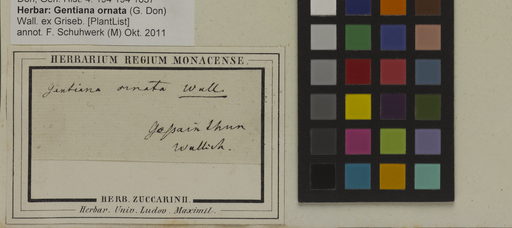 Herbar: Gentiana ornata (G. Don)
Wall. ex Griseb. [PlantList]
annot. F. Schuhwerk (M) Okt. 2011
HERBARIUM REGIUM MONACENSE.
Gentiana ornata Wall.
Gossain Than
Wallich.
HERB. ZUCCARINII.
Herbar. Univ. Ludov. Maximil.